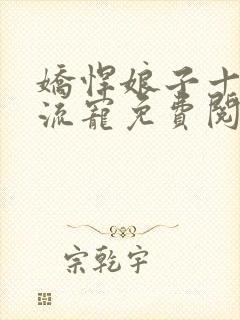 嬌悍娘子十
流寵免費閱
宗乾宇